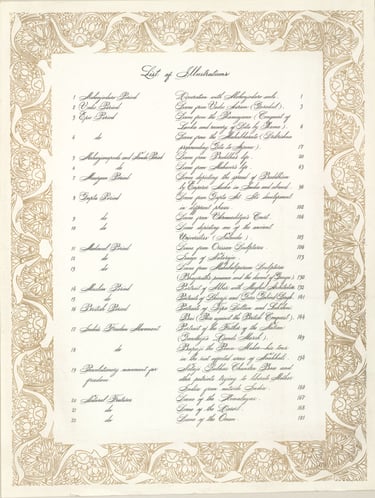 List of Illustrations
1 Mohenjodaro Period Decoration with Mohenjodaro seals . 1
2 Vedic Period Scene from Vedic Asram (Gurukul) . 3
3 Epic Period Scene from the Ramayana (Conquest of
Lanka and recovery of Sita by Rama) . 6
4 do Scene from the Mahabharata (Srikrishna
propounding Gita to Arjuna) . 17
5 Mahajanapada and Nanda Period Scene from Buddha's life . 20
6 do Scene from Mahavir's life . 63
7 Mauryan Period Scene depicting the spread of Buddhism
by Emperor Asoka in India and abroad . 98
8 Gupta Period Scene from Gupta Art. Its development
in different phases . 102
9 do Scene from Vikramaditya's Court . 102
10 do Scene depicting one of the ancient
Universities (Nalanda) . 105
11 Medieval Period Scene from Orissan Sculptures . 113
12 do Image of Nataraja . 129
13 do Scene from Mahabalipuram Sculptures
(Bhagirath's penance and the descent of Ganga) . 130
14 Muslim Period Portrait of Akbar with Mughal Architecture . 132
15 do Portraits of Shivaji and Guru Gobind Singh . 141
16 British Period Portraits of Tipu Sultan and Lakshmi
Bai (Rise against the British Conquest) . 144
17 India's Freedom Movement Portrait of the Father of the Nation
(Gandhiji's Dandi March) . 149
18 do Bapuji the Peace-Maker—his tour
in the riot affected areas of Noakhali . 154
19 Revolutionary movement for Netaji Subhas Chandra Bose and
freedom other patriots trying to liberate Mother
India from outside India . 160
20 Natural Features Scene of the Himalayas . 167
21 do Scene of the Desert . 168
22 do Scene of the Ocean . 181